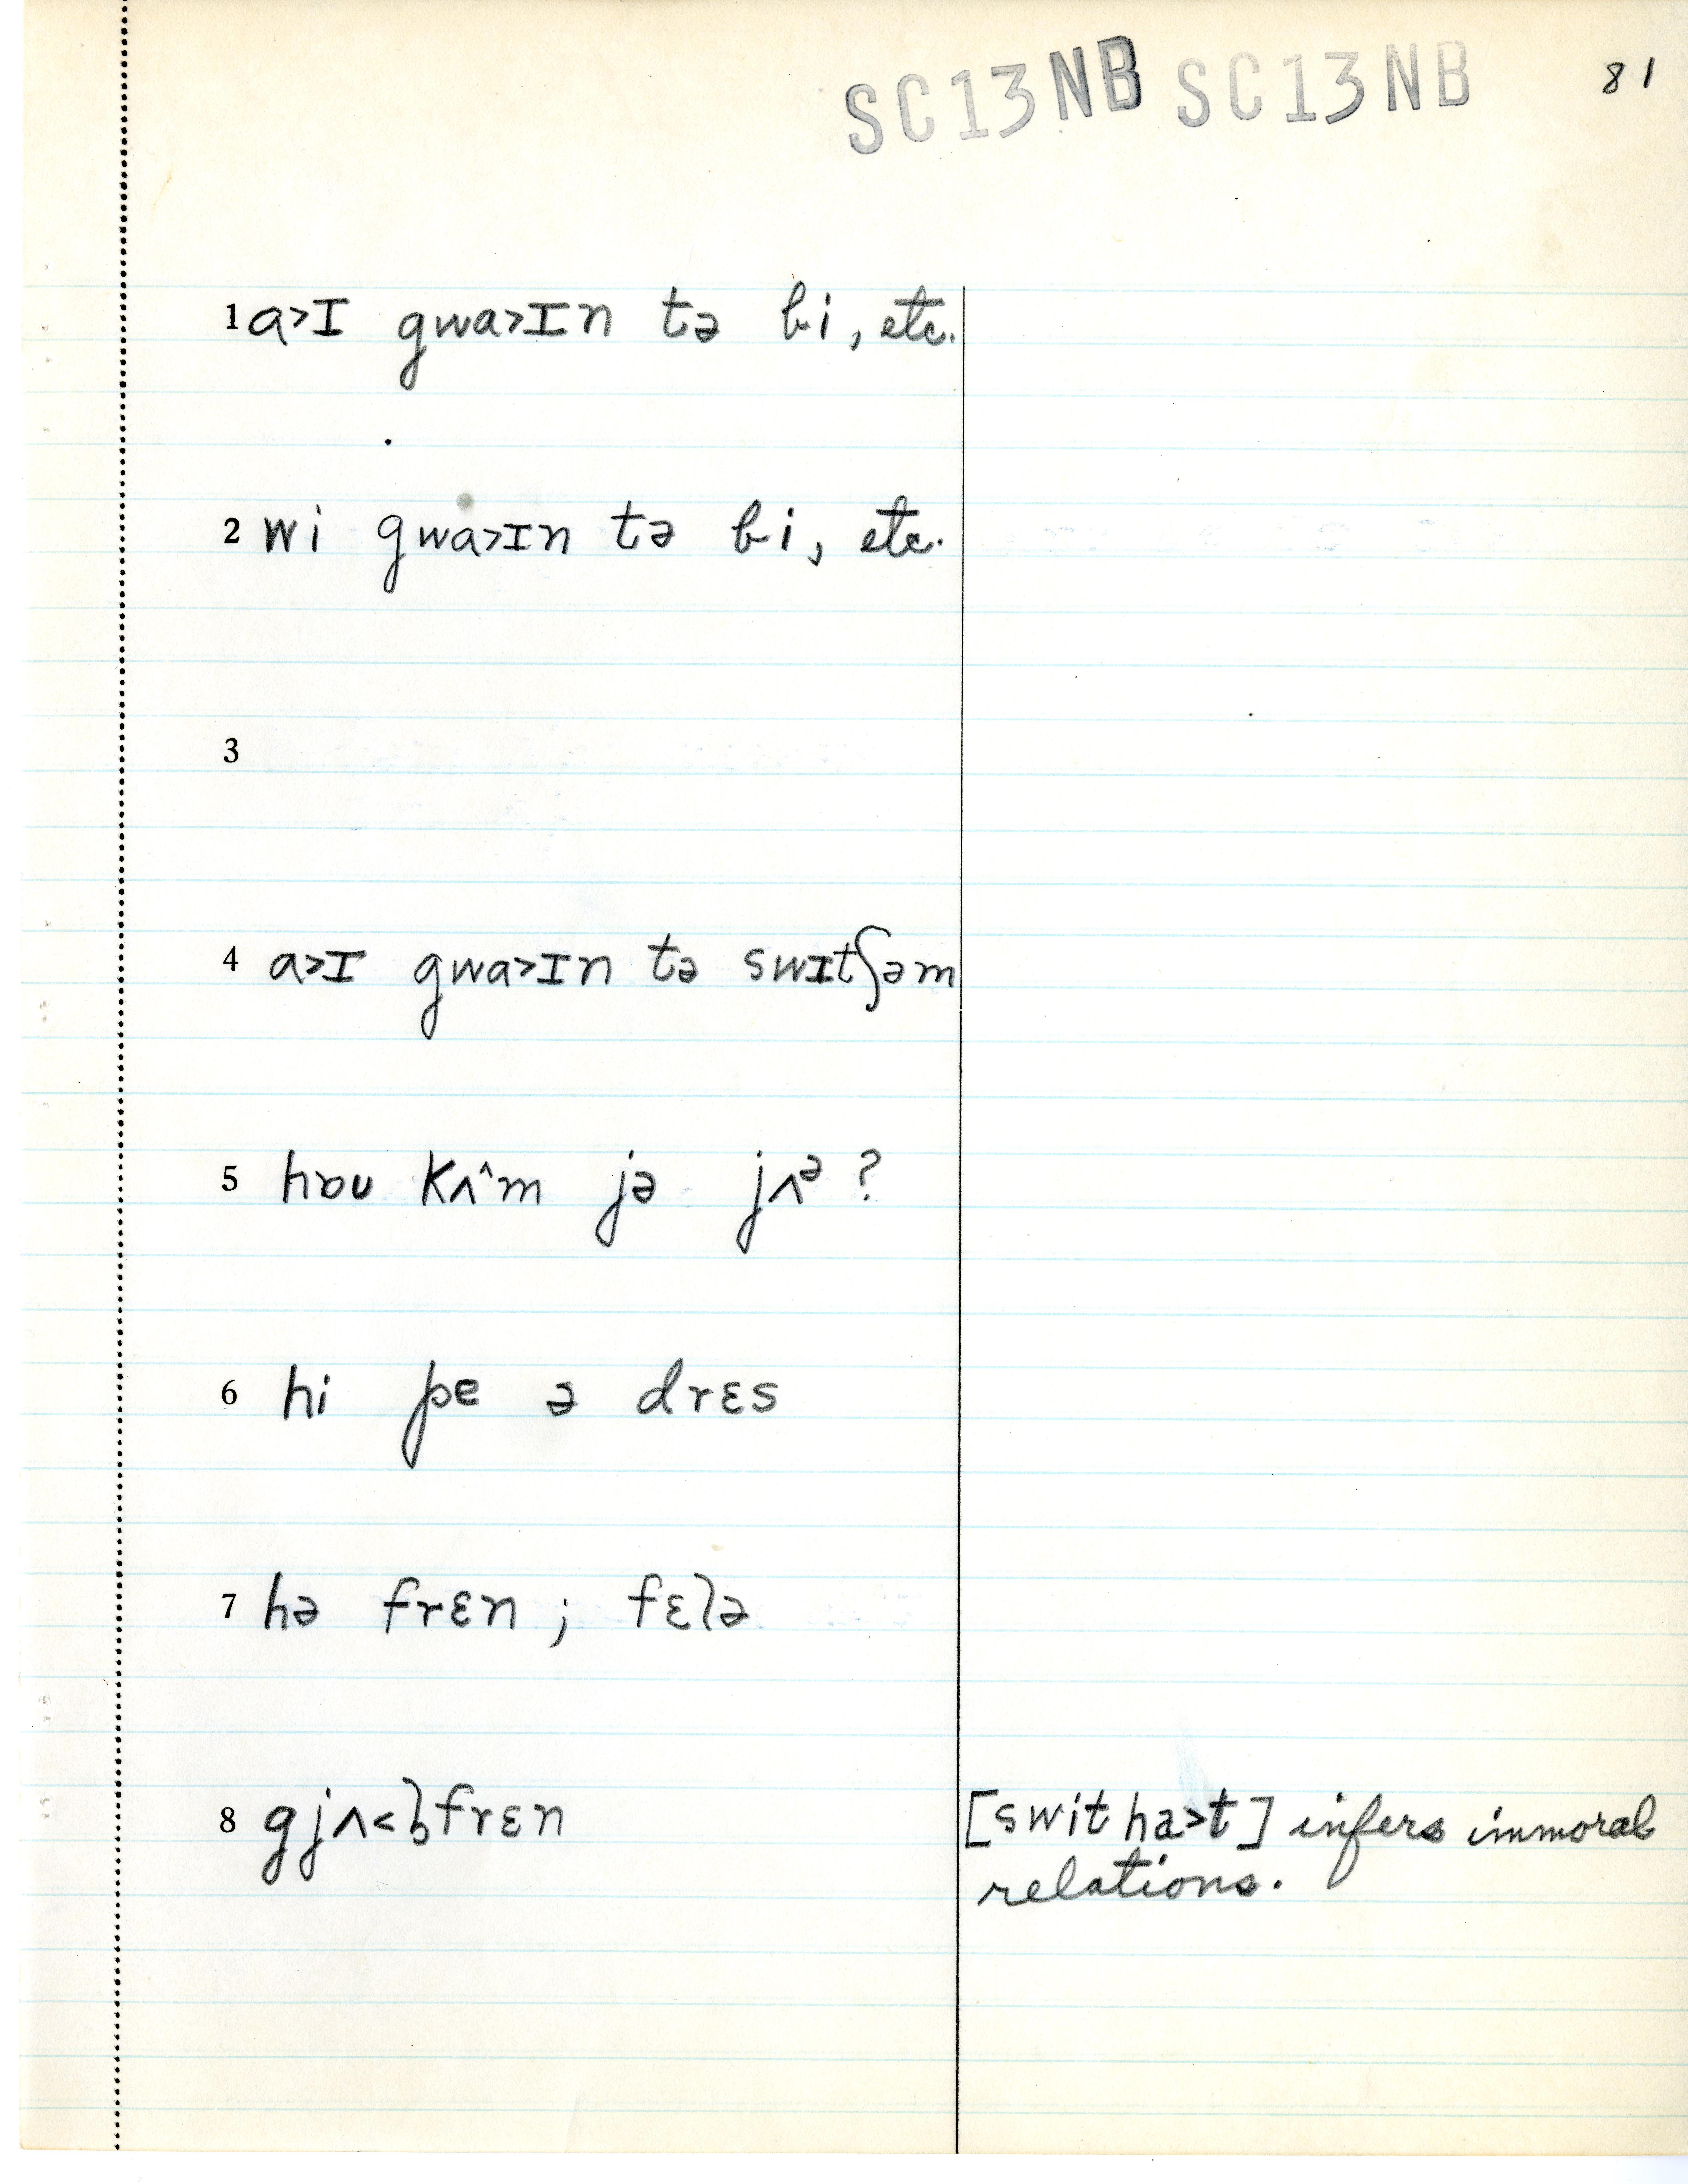 SC13NB SC13NB 81
1 a>ɪ gwa>ɪn tə bi, etc.
2 wi gwa>ɪn tə bi, etc.
3
4 a>ɪ gwa>ɪn tə swɪtʃəm
5 hɒu kʌ^m jə jʌᵊ ?
6 hi pe ə drɛs
7 hə frɛn ; fɛlə
8 gjʌ<ɫfrɛn [swit ha>t] infers immoral
relations.